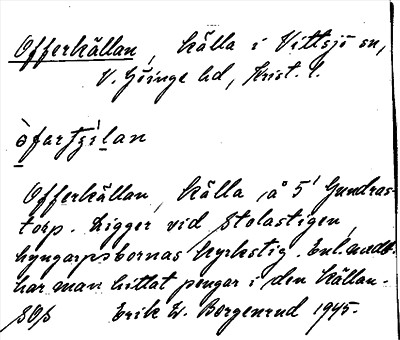 Offerkällan, källa i Vittsjö sn,
V. Göinge hd, Krist. l.
òfarţſílan
Offerkällan, källa, å 5¹ Gundras-
torp. Ligger vid Stolastigen,
lyngarpsbornas kyrkstig. Enl. medd.
har man hittat pengar i den källan.
Erik W. Borgenrud 1945.